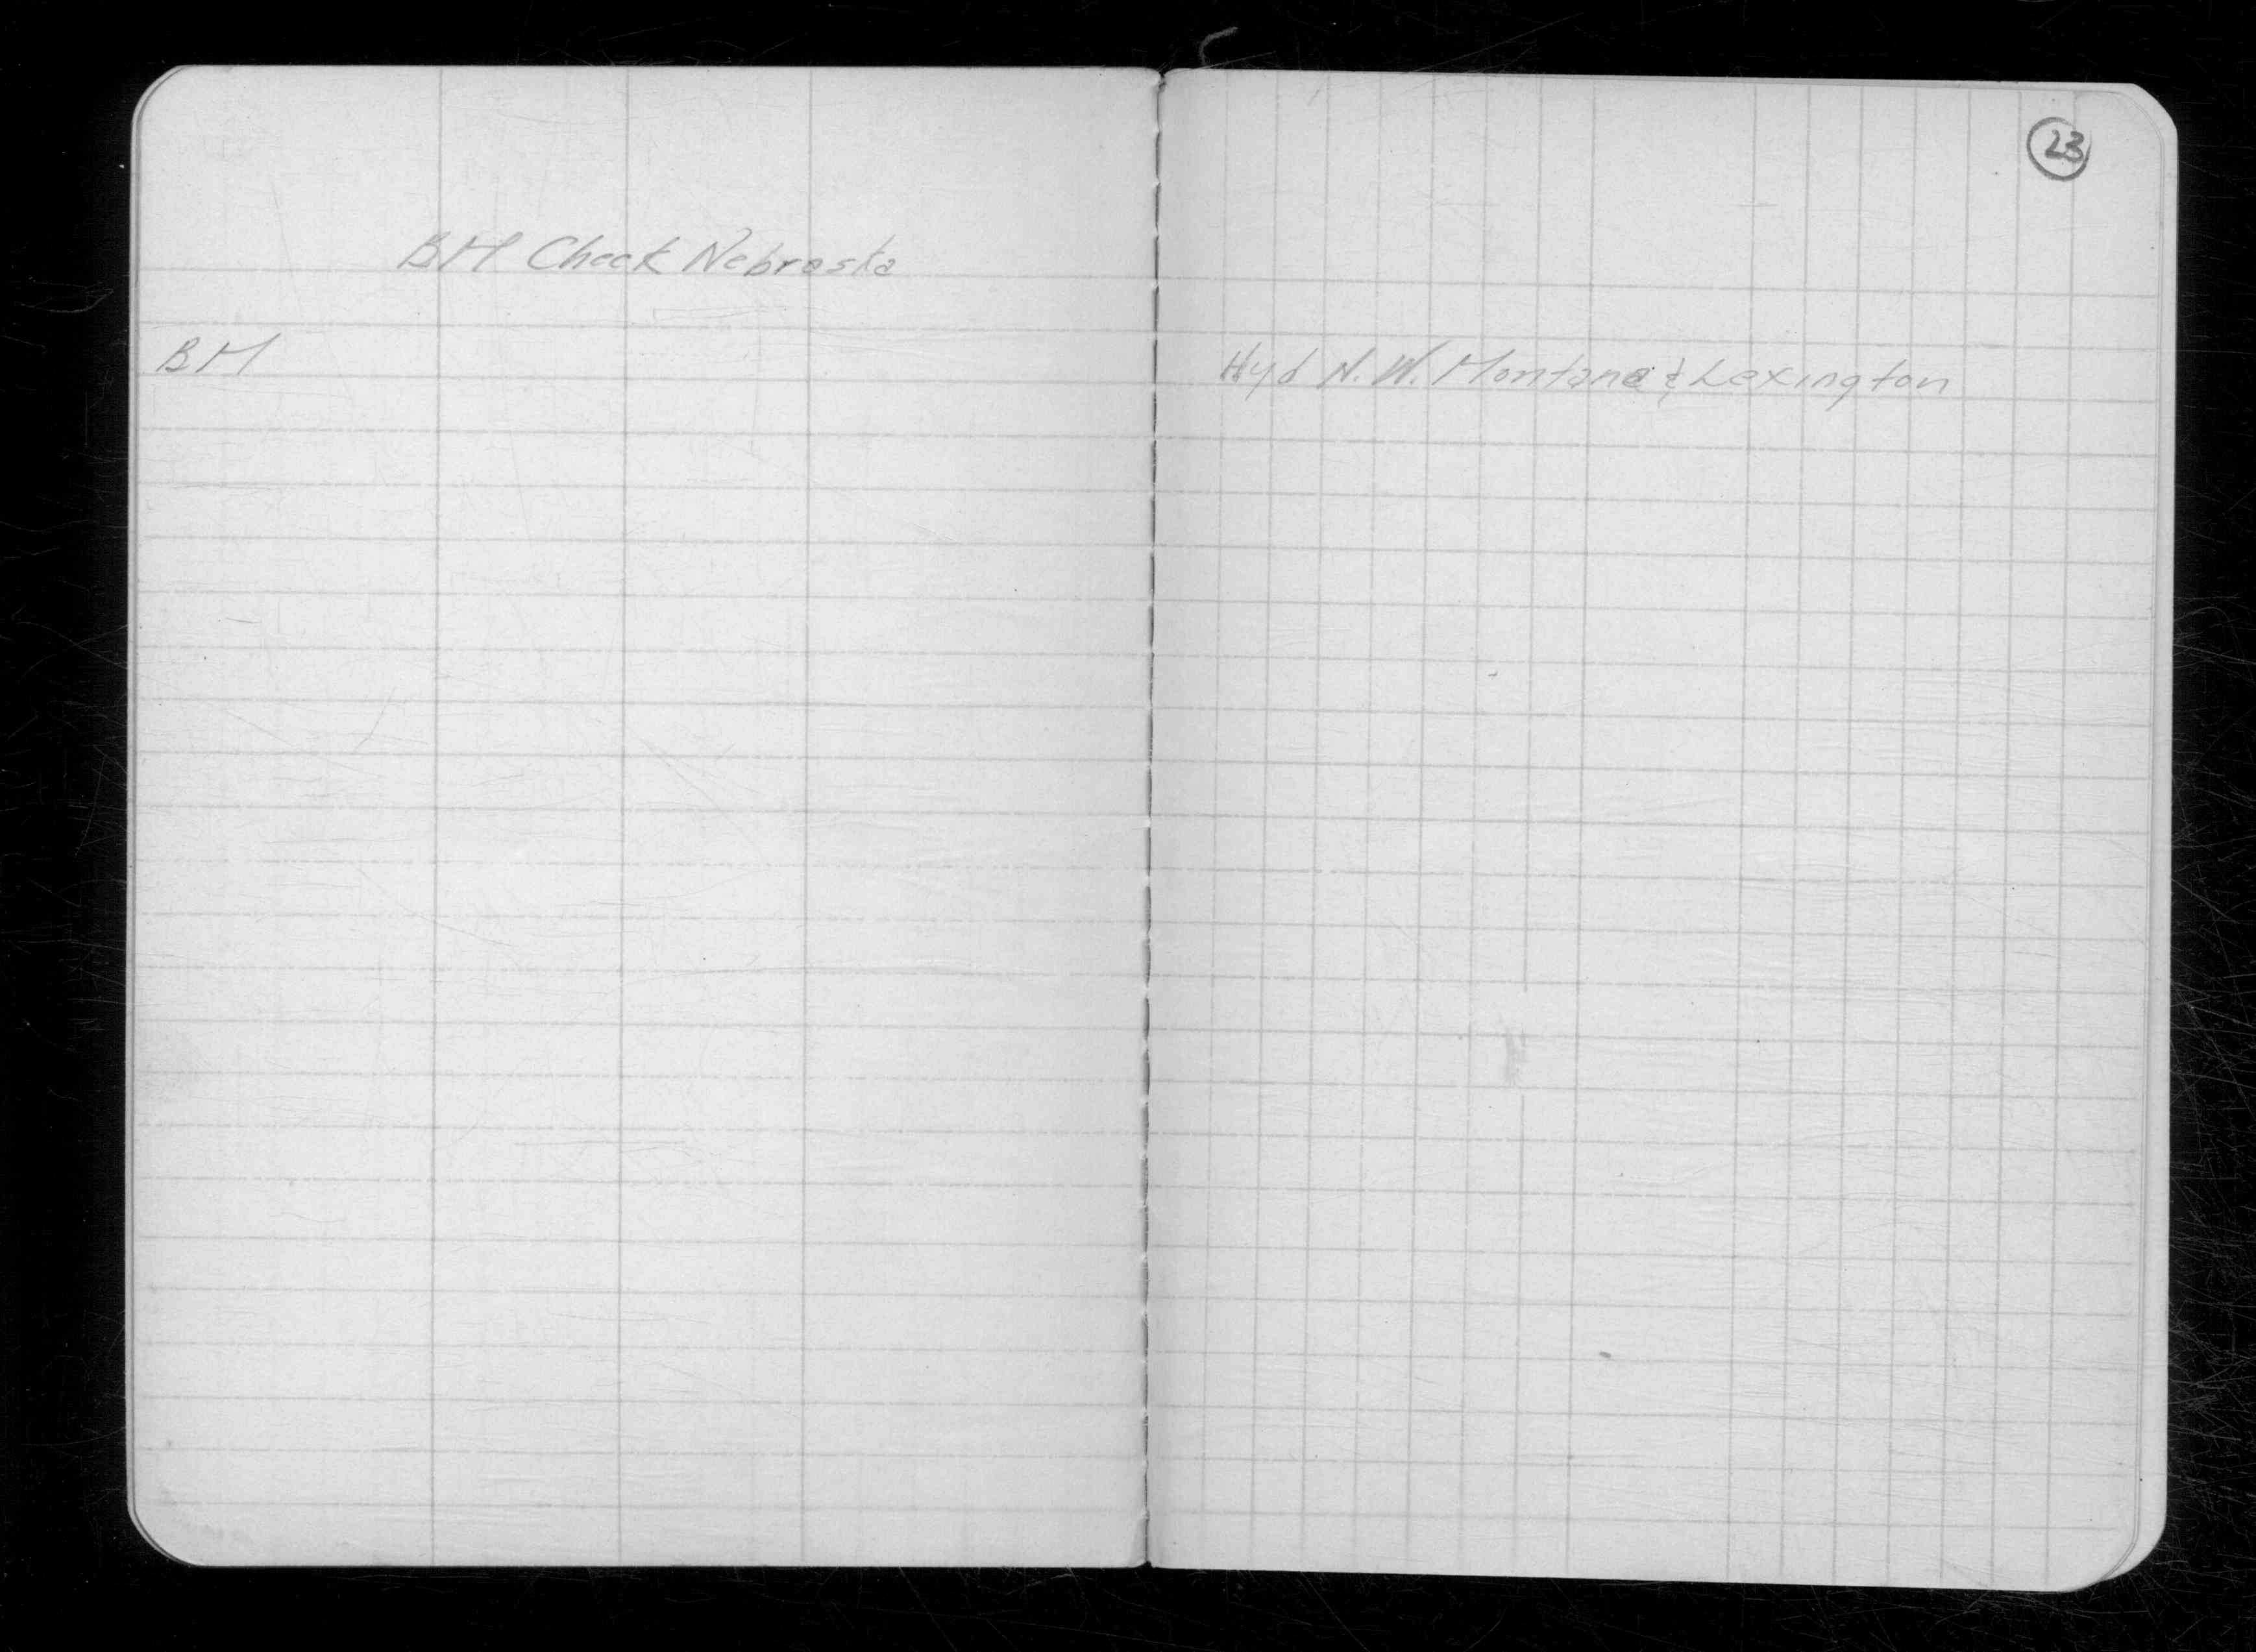 23
BM Check Nebraska
BM
Hyd N.W. Montana & Lexington